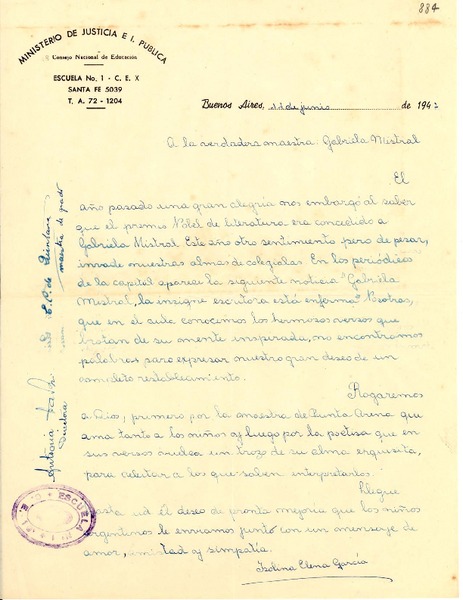 884
MINISTERIO DE JUSTICIA E I. PUBLICA
Consejo Nacional de Educación
ESCUELA No. 1 - C. E. X
SANTA FE 5039
T. A. 72 - 1204
Buenos Aires, 11 de junio de 194
A la verdadera maestra: Gabriela Mistral
El
año pasado una gran alegría nos embargó al saber
que el premio Nobel de literatura era concedido a
Gabriela Mistral. Este año otro sentimiento pero de pesar,
invade nuestras almas de colegialas. En los periódicos
de la capital aparece la siguiente noticia "Gabriela
Mistral, la insigne escritora está enferma". Nosotras,
que en el aula conocimos los hermosos versos que
brotan de su mente inspirada, no encontramos
palabras para expresar nuestro gran deseo de un
completo restablecimiento.
Rogaremos
a Dios, primero por la maestra de Punta Arena que
ama tanto a los niños y luego por la poetisa que en
sus versos vuelca un trozo de su alma exquisita,
para deleitar a los que saben interpretarlos.
Llegue
hasta ud el deseo de pronta mejoría que los niños
argentinos le enviamos junto con un mensaje de
amor, amistad y simpatía.
Isolina Elena García
de Quintana
maestra de grado
Antonia
Directora
ESCUELA Nº 1